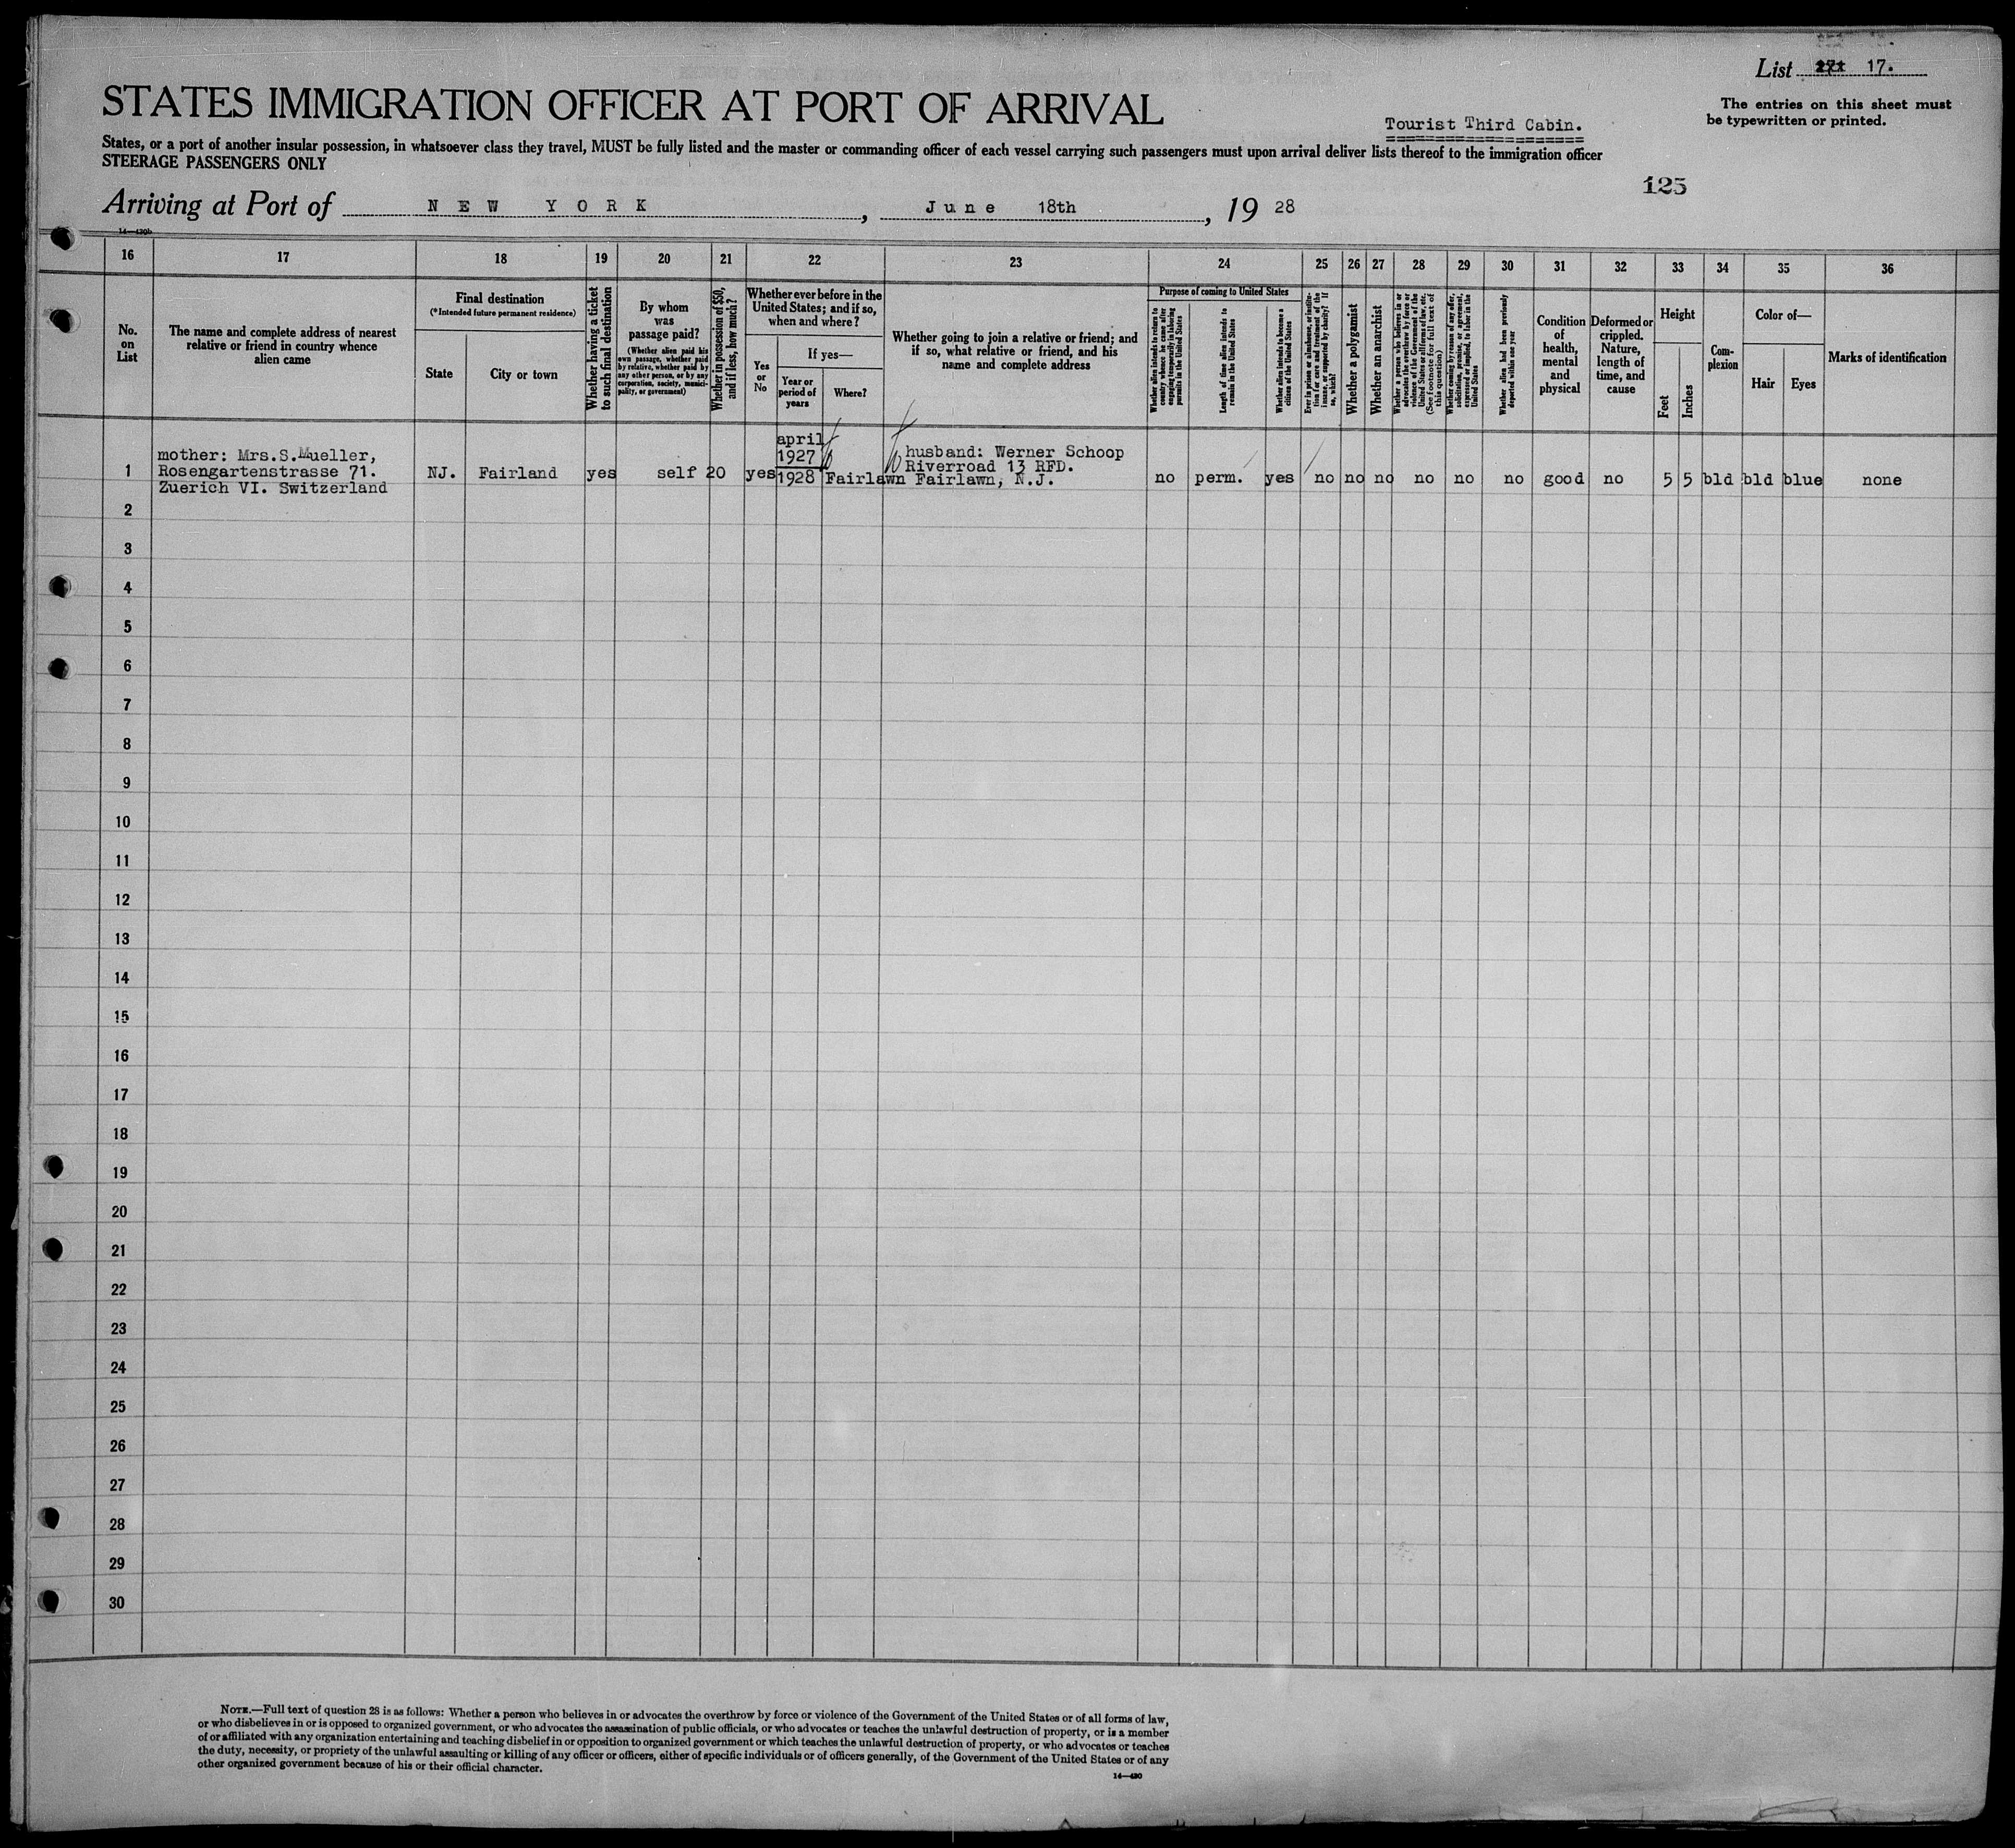 List 17.
STATES IMMIGRATION OFFICER AT PORT OF ARRIVAL
The entries on this sheet must
be typewritten or printed.
Tourist Third Cabin.
States, or a port of another insular possession, in whatsoever class they travel, MUST be fully listed and the master or commanding officer of each vessel carrying such passengers must upon arrival deliver lists thereof to the immigration officer
STEERAGE PASSENGERS ONLY
125
Arriving at Port of NEW YORK, June 18th, 19 28
14—420b
16 17 18 19 20 21 22 23 24 25 26 27 28 29 30 31 32 33 34 35 36
No.
on
List
The name and complete address of nearest
relative or friend in country whence
alien came
Final destination
(*Intended future permanent residence)
State
City or town
Whether having a ticket
to such final destination
By whom
was
passage paid?
(Whether alien paid his
own passage, whether paid
by relative, whether paid by
any other person, or by any
corporation, society, munici-
pality, or government)
Whether in possession of $50,
and if less, how much?
Whether ever before in the
United States; and if so,
when and where?
Yes
or
No
If yes—
Year or
period of
years
Where?
Whether going to join a relative or friend; and
if so, what relative or friend, and his
name and complete address
Purpose of coming to United States
Whether alien intends to return to
country whence he came after
engaging temporarily in laboring
pursuits in the United States
Length of time alien intends to
remain in the United States
Whether alien intends to become a
citizen of the United States
Ever in prison or almshouse, or institu-
tion for care and treatment of the
insane, or supported by charity? If
so, which?
Whether a polygamist
Whether an anarchist
Whether a person who believes in or
advocates the overthrow by force or
violence of the Government of the
United States or all forms of law, etc.
(See footnote for full text of
this question)
Whether coming by reason of any offer,
solicitation, promise, or agreement,
expressed or implied, to labor in the
United States
Whether alien had been previously
deported within one year
Condition
of
health,
mental
and
physical
Deformed or
crippled.
Nature,
length of
time, and
cause
Height
Feet
Inches
Com-
plexion
Color of—
Hair
Eyes
Marks of identification
mother: Mrs.S.Mueller,
1 Rosengartenstrasse 71.
Zuerich VI. Switzerland
NJ. Fairland yes self 20 yes
april
1927
1928 Fairlawn
husband: Werner Schoop
Riverroad 13 RFD.
Fairlawn, N.J.
no perm. yes no no no no no no good no 5 5 bld bld blue none
2
3
4
5
6
7
8
9
10
11
12
13
14
15
16
17
18
19
20
21
22
23
24
25
26
27
28
29
30
NOTE.—Full text of question 28 is as follows: Whether a person who believes in or advocates the overthrow by force or violence of the Government of the United States or of all forms of law,
or who disbelieves in or is opposed to organized government, or who advocates the assassination of public officials, or who advocates or teaches the unlawful destruction of property, or is a member
of or affiliated with any organization entertaining and teaching disbelief in or opposition to organized government or which teaches the unlawful destruction of property, or who advocates or teaches
the duty, necessity, or propriety of the unlawful assaulting or killing of any officer or officers, either of specific individuals or of officers generally, of the Government of the United States or of any
other organized government because of his or their official character.
14—420